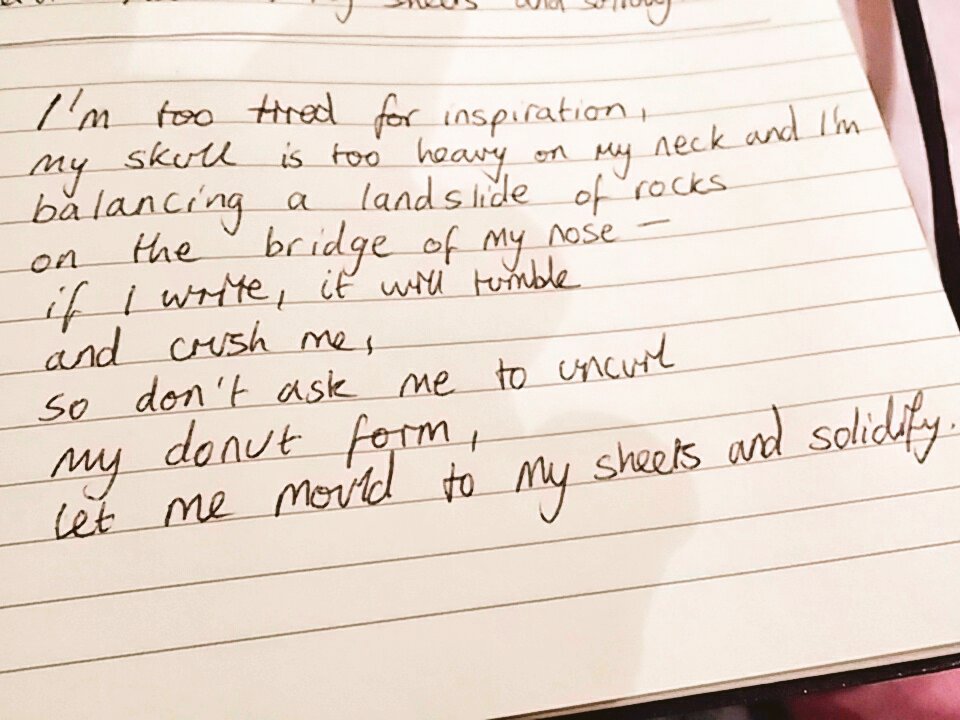 my sheets and solidify
I'm too tired for inspiration,
my skull is too heavy on my neck and I'm
balancing a landslide of rocks
on the bridge of my nose —
if I write, it will tumble
and crush me,
so don't ask me to uncurl
my donut form,
let me mould to my sheets and solidify.